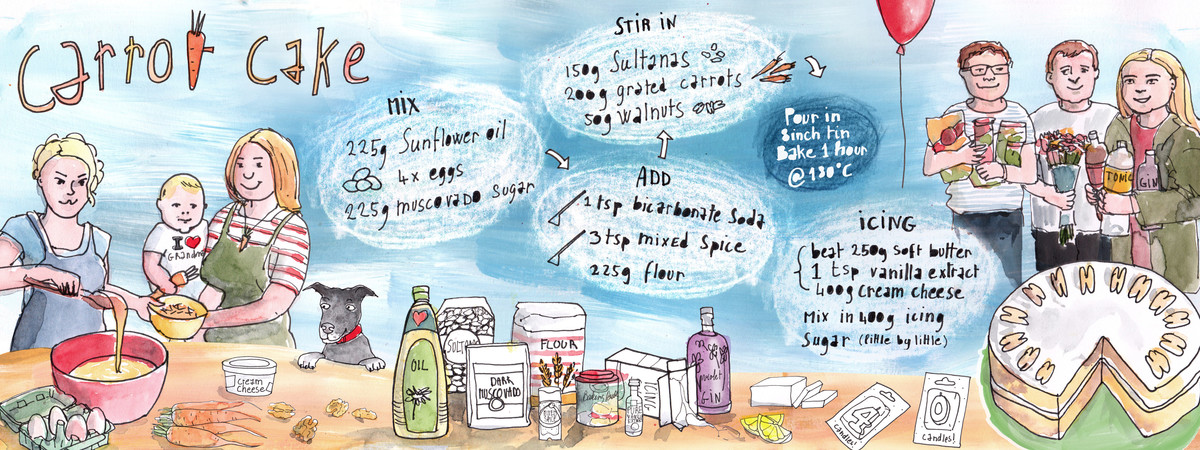 carrot cake
MIX
225g Sunflower oil
4x eggs
225g muscovado sugar
STIR IN
150g Sultanas
200g grated carrots
50g walnuts
ADD
1 tsp bicarbonate soda
3 tsp mixed spice
225g flour
Pour in
8inch tin
Bake 1 hour
@ 180°C
ICING
beat 250g soft butter
1 tsp vanilla extract
400g cream cheese
Mix in 400g icing
Sugar (little by little)
I ❤
Grandma
TONIC
GIN
cream
cheese
OIL
SULTANAS
DARK
MUSCOVADO
FLOUR
ICING
violet
GIN
4
candles!
0
candles!